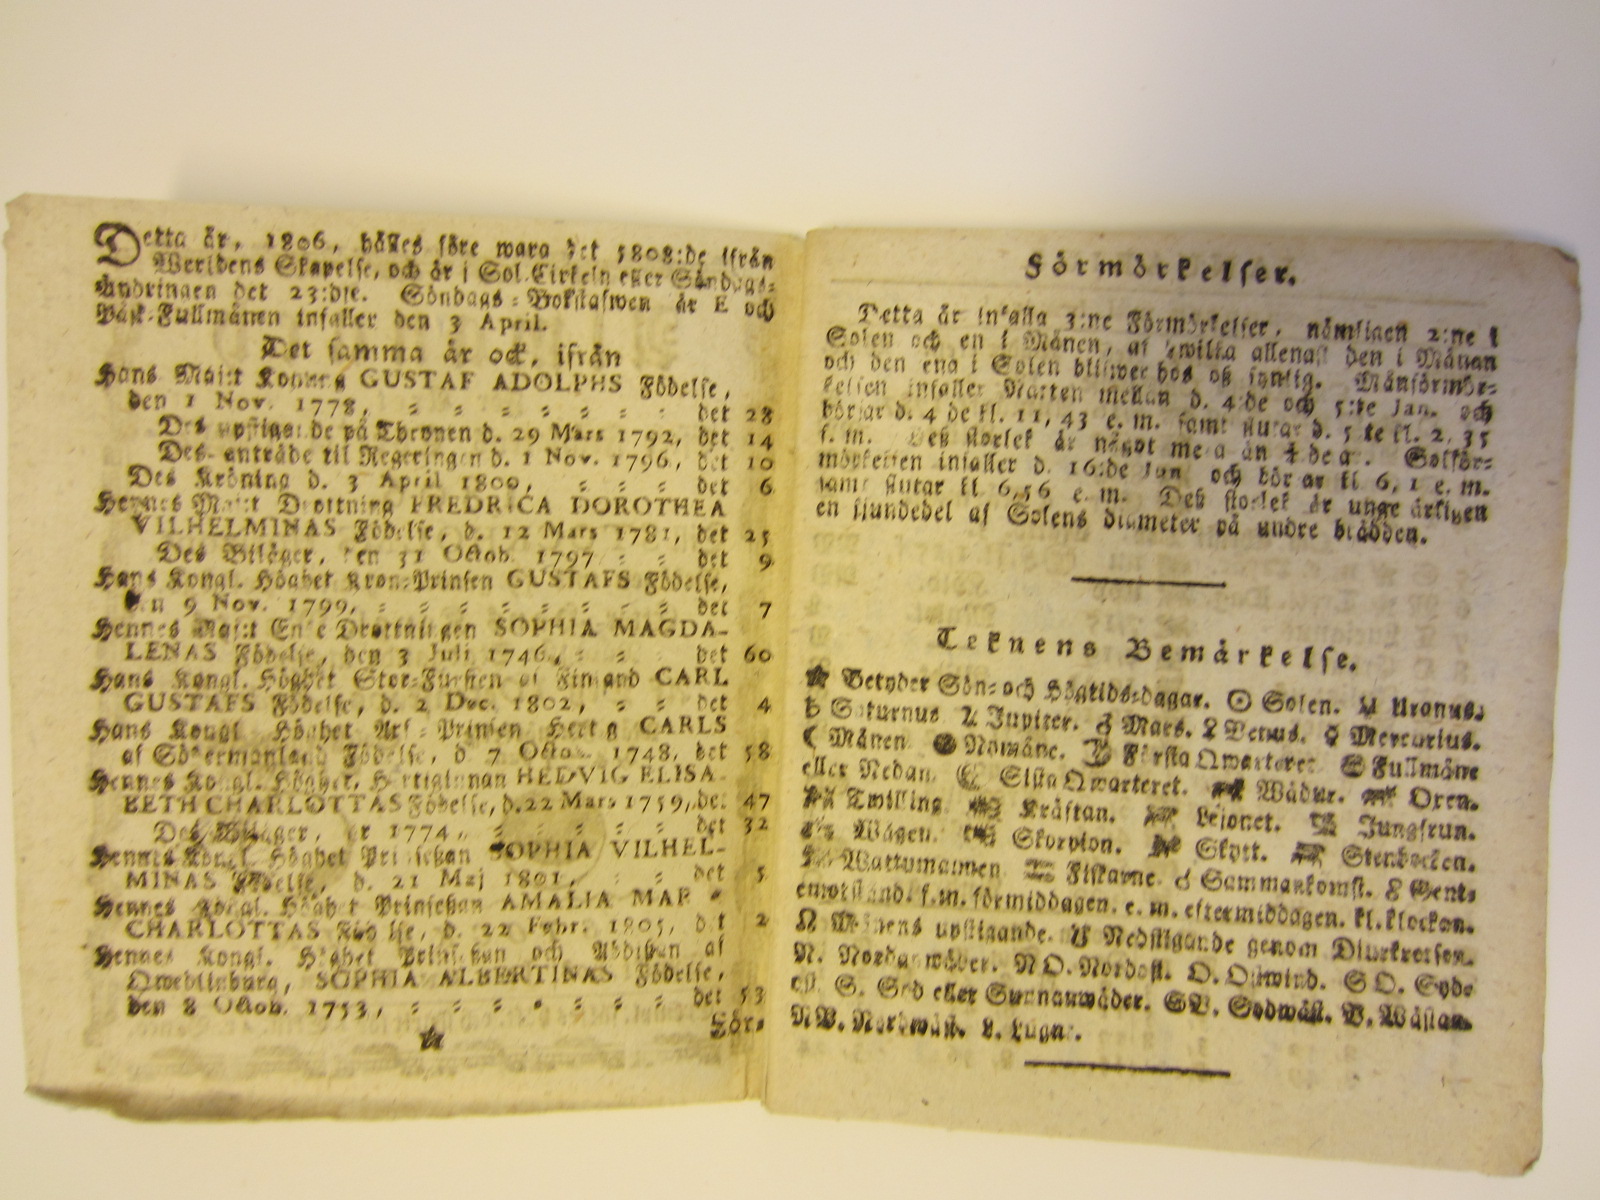 Detta år, 1806, hålles före wara det 5808:de ifrån
Werldens Skapelse, och är i Sol-Cirkeln eller Söndags-
ändringen det 23:dje. Söndags-Bokstafwen är E och
Påsk-Fullmånen infaller den 3 April.
Det samma är ock, ifrån
Hans Maj:t Konung GUSTAF ADOLPHS Födelse,
den 1 Nov. 1778, = = = = = = = det 28
Des upstigande på Thronen d. 29 Mars 1792, det 14
Des anträde til Regeringen d. 1 Nov. 1796, det 10
Des Kröning d. 3 April 1800, = = = det 6
Hennes Maj:t Drottning FREDRICA DOROTHEA
VILHELMINAS Födelse, d. 12 Mars 1781, det 25
Des Biläger, den 31 Octob. 1797 = = det 9
Hans Kongl. Höghet Kron-Prinsen GUSTAFS Födelse,
den 9 Nov. 1799, = = = = = = = det 7
Hennes Maj:t Enke Drottningen SOPHIA MAGDA-
LENAS Födelse, den 3 Juli 1746, = = = det 60
Hans Kongl. Höghet Stor-Fursten af Finland CARL
GUSTAFS Födelse, d. 2 Dec. 1802, = = det 4
Hans Kongl. Höghet Arf-Prinsen Hertig CARLS
af Södermanland Födelse, d. 7 Octob. 1748, det 58
Hennes Kongl. Höghet, Hertiginnan HEDVIG ELISA-
BETH CHARLOTTAS Födelse, d. 22 Mars 1759, det 47
Des Biläger, år 1774, = = = = = det 32
Hennes Kongl. Höghet Prinsessan SOPHIA VILHEL-
MINAS Födelse, d. 21 Maj 1801, = = det 5
Hennes Kongl. Höghet Prinsessan AMALIA MAR.
CHARLOTTAS Födelse, d. 22 Febr. 1805, det 2
Hennes Kongl. Höghet Prinsessan och Abbissan af
Qwedlinburg, SOPHIA ALBERTINAS Födelse,
den 8 Octob. 1753, = = = = = = det 53
För-
Förmörkelser.
Detta år infalla 3:ne Förmörkelser, nämligen 2:ne i
Solen och en i Månen, af hwilka allenast den i Månan
och den ena i Solen blifwer hos oß synlig. Månförmör-
kelsen infaller Natten mellan d. 4:de och 5:te Jan. och
börjar d. 4 de kl. 11, 43 e. m. samt slutar d. 5 te kl. 2, 35
f. m. Deß storlek är något mera än delar. Solför-
mörkelsen infaller d. 16:de Jun och börjar kl 6, 1 e. m.
samt slutar kl 6,56 e. m. Deß storlek är unge färligen
en siundedel af Solens diameter på undre brädden.
Teknens Bemärkelse.
★ Betyder Sön- och Högtids-dagar. ☉ Solen. ♅ Uranus.
♄ Saturnus ♃ Jupiter. ♂ Mars. ♀ Venus. ☿ Mercurius.
☾ Månen ● Nymåne. ☽ Första Qwarteret Fullmåne
eller Nedan. ☾ Sista Qwarteret. ♈ Wädur. ♉ Oxen.
♊ Twilling ♋ Kräftan. ♌ Lejonet. ♍ Jungfrun.
♎ Wågen. ♏ Skorpion. ♐ Skytt. ♑ Stenbocken.
♒ Wattumannen ♓ Fiskarne. ☌ Sammankomst. ☍ Gent-
emotstånd. f.m. förmiddagen. e. m. eftermiddagen. kl. klockan.
☊ Månens upstigande. ☋ Nedstigande genom Djurkretsen.
N. Nordanwäder. NO. Nordost. O. Ostwind. SO. Syd-
ost. S. Syd eller Sunnanwäder. SV. Sydwäst. V. Wästan.
NV. Nordwäst. L. Lugnt.